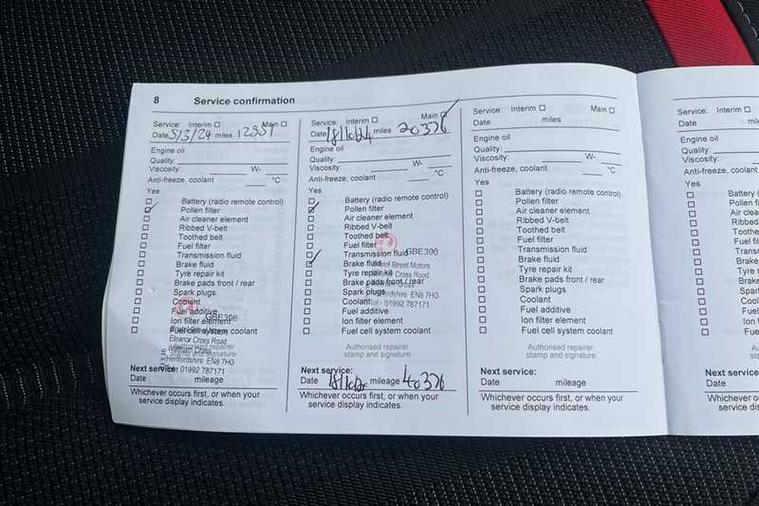 8 Service confirmation
Service: Interim ☐ Main ☐
Date 5/3/24 miles 12551
Engine oil
Quality:
Viscosity: W-
Anti-freeze, coolant °C
Yes
Battery (radio remote control)
Pollen filter
Air cleaner element
Ribbed V-belt
Toothed belt
Fuel filter
Transmission fluid
Brake fluid
Tyre repair kit
Brake pads front / rear
Spark plugs
Coolant
Fuel additive
GBE306
Ion filter element
Fuel cell system coolant
Eleanor Cross Road
Authorised repairer
stamp and signature
Hertfordshire EN8 7HG
Next service: 01992 787171
Date mileage
Whichever occurs first, or when your
service display indicates.
Service: Interim ☐ Main
Date miles 20376
Engine oil
Quality:
Viscosity: W-
Anti-freeze, coolant °C
Yes
Battery (radio remote control)
Pollen filter
Air cleaner element
Ribbed V-belt
Toothed belt
Fuel filter
Transmission fluid GBE306
Brake fluid Street Motors
Tyre repair kit Cross Road
Brake pads front / rear
Spark plugs EN8 7HG
Coolant 01992 787171
Fuel additive
Ion filter element
Fuel cell system coolant
Authorised repairer
stamp and signature
Next service:
Date mileage 40376
Whichever occurs first, or when your
service display indicates.
Service: Interim ☐ Main ☐
Date miles
Engine oil
Quality:
Viscosity: W-
Anti-freeze, coolant °C
Yes
Battery (radio remote control)
Pollen filter
Air cleaner element
Ribbed V-belt
Toothed belt
Fuel filter
Transmission fluid
Brake fluid
Tyre repair kit
Brake pads front / rear
Spark plugs
Coolant
Fuel additive
Ion filter element
Fuel cell system coolant
Authorised repairer
stamp and signature
Next service:
Date mileage
Whichever occurs first, or when your
service display indicates.
Service: Interim ☐
Date
Engine oil
Quality:
Viscosity:
Anti-freeze, coolant
Yes
Battery
Pollen
Air
Ribbed
Next service:
Date
Whichever
service